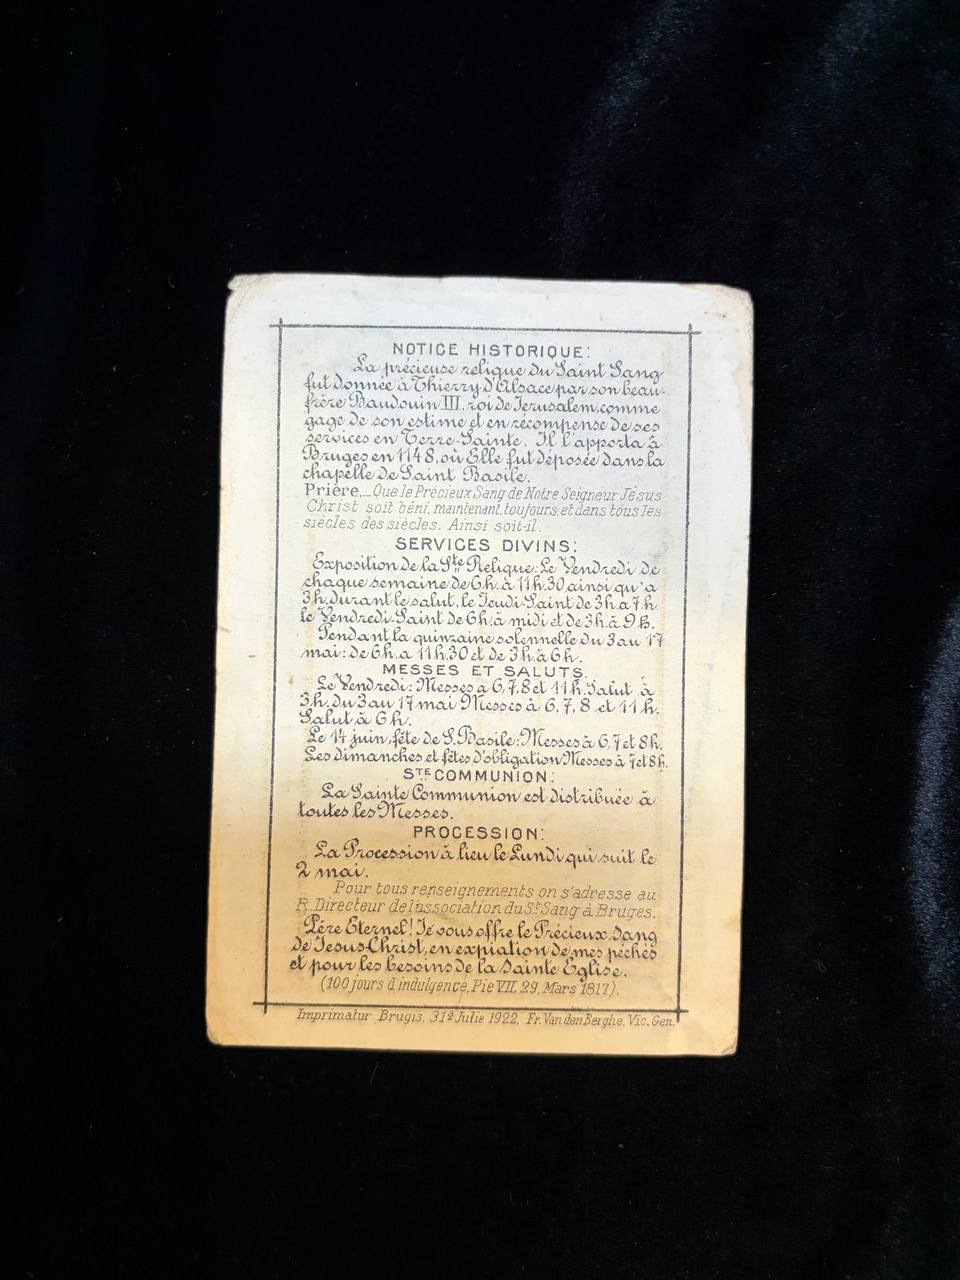 NOTICE HISTORIQUE:
La précieuse relique du Saint Sang
fut donnée à Thierry d'Alsace par son beau-
frère Baudouin III, roi de Jerusalem, comme
gage de son estime et en récompense de ses
services en Terre-Sainte. Il l'apporta à
Bruges en 1148, où Elle fut déposée dans la
chapelle de Saint Basile.
Prière._Que le Précieux Sang de Notre Seigneur Jésus
Christ soit béni, maintenant, toujours, et dans tous les
siècles des siècles. Ainsi soit-il.
SERVICES DIVINS:
Exposition de la Ste Relique: Le Vendredi de
chaque semaine de 6h. à 11h.30 ainsi qu'a
3h. durant le salut, le Jeudi-Saint de 3h. a 7h
le Vendredi-Saint de 6h. à midi et de 3h. à 9h.
Pendant la quinzaine solennelle du 3 au 17
mai: de 6h. a 11h.30 et de 3h. à 6h.
MESSES ET SALUTS.
Le Vendredi: Messes a 6, 7, 8 et 11h. Salut à
3h. du 3 au 17 mai Messes à 6, 7, 8 et 11h.
Salut à 6h.
Le 14 juin, fête de S. Basile: Messes à 6, 7 et 8h.
Les dimanches et fêtes d'obligation Messes à 7 et 8h.
STE COMMUNION:
La Sainte Communion est distribuée à
toutes les Messes.
PROCESSION:
La Procession à lieu le Lundi qui suit le
2 mai.
Pour tous renseignements on s'adresse au
R. Directeur de l'association du St. Sang à Bruges.
Père Eternel! Je vous offre le Précieux Sang
de Jesus-Christ, en expiation de mes péchés
et pour les besoins de la Sainte Eglise.
(100 jours d'indulgence, Pie VII. 29, Mars 1817).
Imprimatur Brugis, 31a Julie 1922, Fr. Van den Berghe, Vic. Gen.